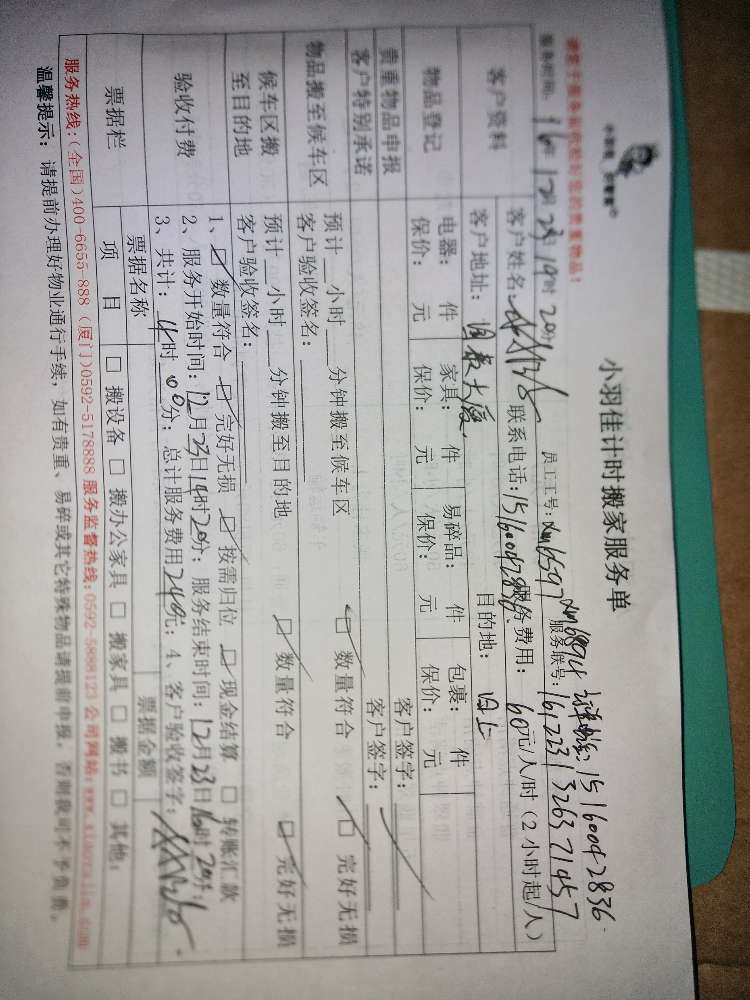 小羽佳计时搬家服务单
请客户搬家前收检好您的贵重物品!
服务时间: 16年 12月 23日 14时 20分 员工工号: 服务联号: 161223132637 1457
15160042836
客户资料 客户姓名: 联系电话: 15160042836 服务费用: 60元/人/时 (2小时起/人)
客户地址: 国泰大厦 目的地: 同上
物品登记 电器: 件 家具: 件 易碎品: 件 包裹: 件
保价: 元 保价: 元 保价: 元 保价: 元
贵重物品申报 客户签字:
客户特别承诺 客户签字:
物品搬至候车区 预计 小时 分钟搬至候车区 数量符合 完好无损
客户验收签名:
候车区搬至目的地 预计 小时 分钟搬至目的地 数量符合 完好无损
客户验收签名:
验收付费 1、 数量符合 完好无损 按需归位 现金结算 转账汇款
2、服务开始时间: 12月23日14时20分; 服务结束时间: 12月23日16时20分;
3、共计: 4时00分; 总计服务费用240元; 4、客户验收签字:
票据栏 票据名称 票据金额
项 目 □ 搬设备 □ 搬办公家具 □ 搬家具 □ 搬书 □ 其他:
服务热线:(全国)400-6655-888 (厦门)0592-5178888 服务监督热线:0592-5888123 公司网站:
温馨提示: 请提前办理好物业通行手续, 如有贵重、易碎或其它特殊物品请提前申报, 否则我司不予负责。